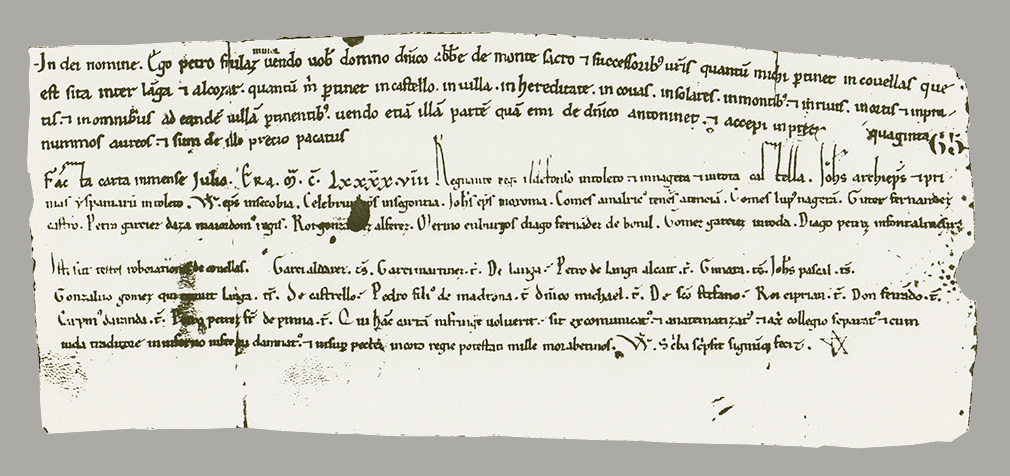 In dei nomine. Ego petro vendo vobis domno dominico abbe de monte sacro et successoribus vestris quantum michi pertinet in covellas que
est sita inter langa et alcozar. quantum mihi pertinet in castello. in villa. in hereditate. in covas. in solares. in montibus. et in rivis. in ortis et in pra
tis. et in omnibus ad eandem villam pertinentibus. vendo etiam illam partem quam emi de dominico antoninez. et accepi in precio quaginta 65
nummos aureos. et sum de illo precio pacatus
Facta carta in mense Julio. Era. M. C. LXXXXVIII Regnante rege ildefonso in toleto et in nagera et in tota castella. Johs archieps et pri
mas yspaniarum in toleto. W. eps in secobia. Celebrunus in segontia. Johs eps in oxoma. Comes amalricus tenens atencia. Comes lupus nagera. Guter fernandez
castro. Petro garciez daza maiordomus regis. Ror gonzalvez alferez. Merino in burgos diago fernandez de boniel. Gomez garciez in roda. Diago petriz
Isti sunt testes roborationis de covellas. Garci alvarez. ts. Garci martinez. t. De langa. Petro de langa alcait. t. ts. Johs pascal. ts.
Gonzalvo gomez qui tenuit langa. ts. De castrello. Pedro filius de madrona. t. dominico michael. t. De sco stefano. Roi ciprian. t. Don ferrando. t.
daranda. t. Petro petrez de pinna. t. Qui hanc cartam infringere voluerit. sit excomunicatus. et anatematizatus. et a collegio separatus. et cum
iuda traditore in inferno damnatus. et insuper pectet in coto regie potestati mille morabetinos. W. Scriba scripsit signumque fecit.